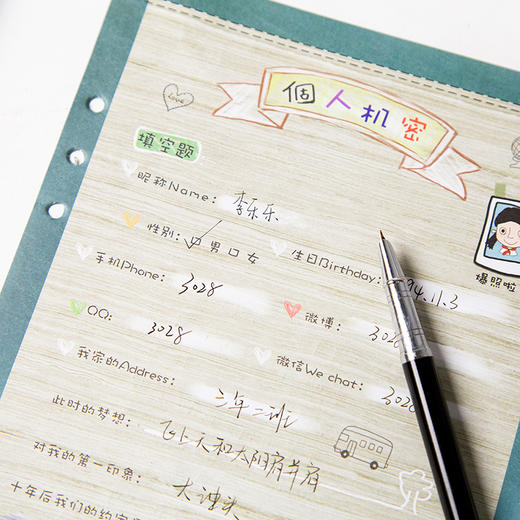 Love
個人机密
填空题
昵称Name: 李乐乐
性别: 口男 口女 生日Birthday: 94.11.3
爆照啦
手机Phone: 3028 微博: 302
QQ: 3028 微信We chat: 3028
我家的Address: 三年二班
此时的梦想: 飞上天和太阳肩并肩
对我的第一印象: 大浊头
十年后我们的约定